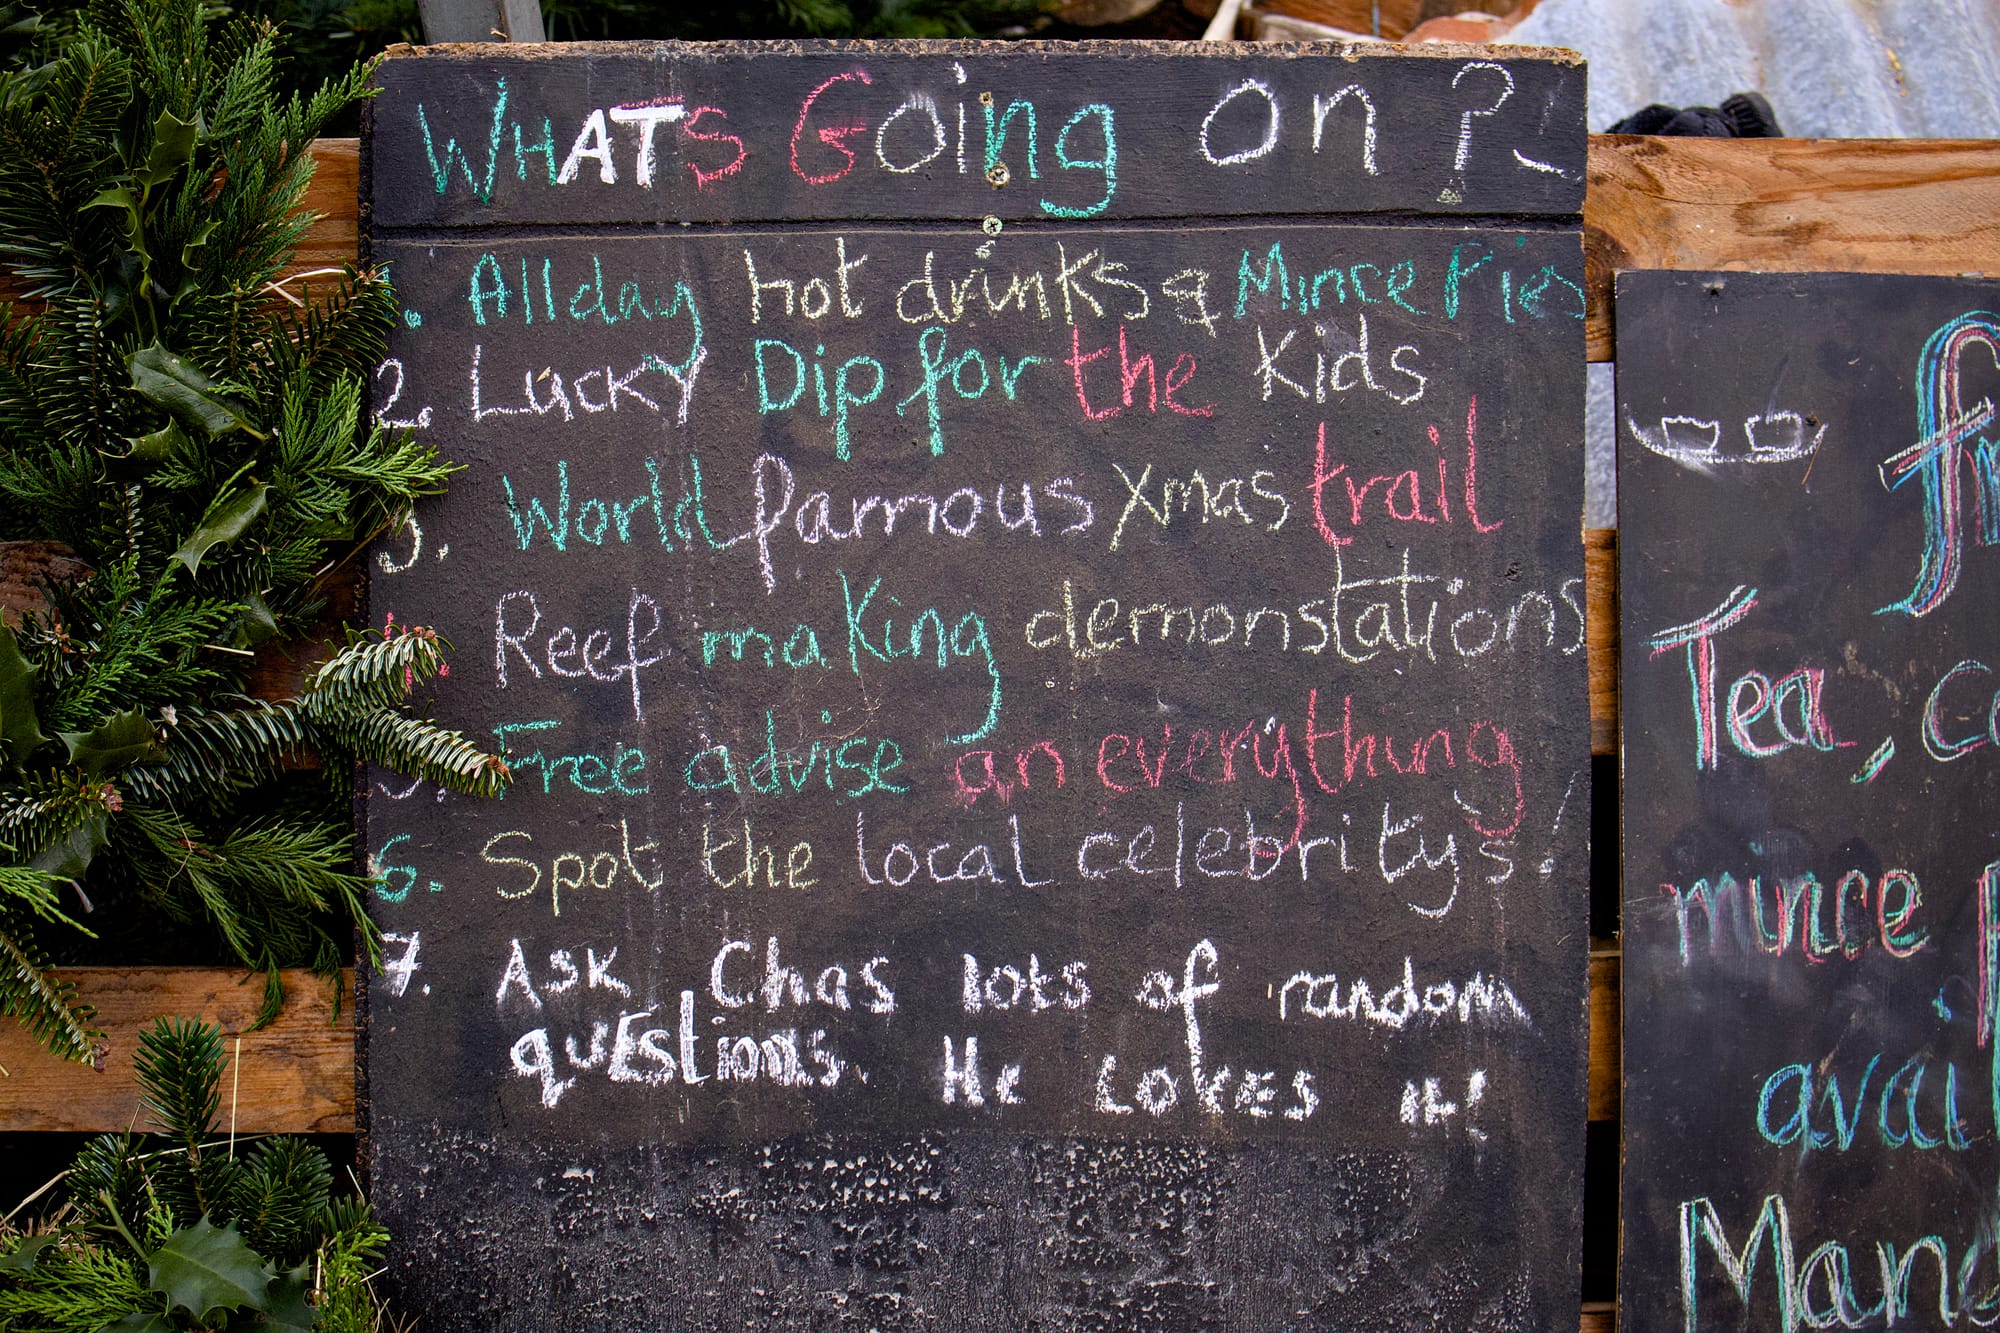 WHATS Going On ?!
1. All day hot drinks & Mince Pies
2. Lucky Dip for the Kids
3. World famous xmas trail
Reef making demonstations
5. Free advise an everything
6. Spot the local celebritys!
7. Ask Chas lots of random
questions. He Loves it!
Tea,
mince